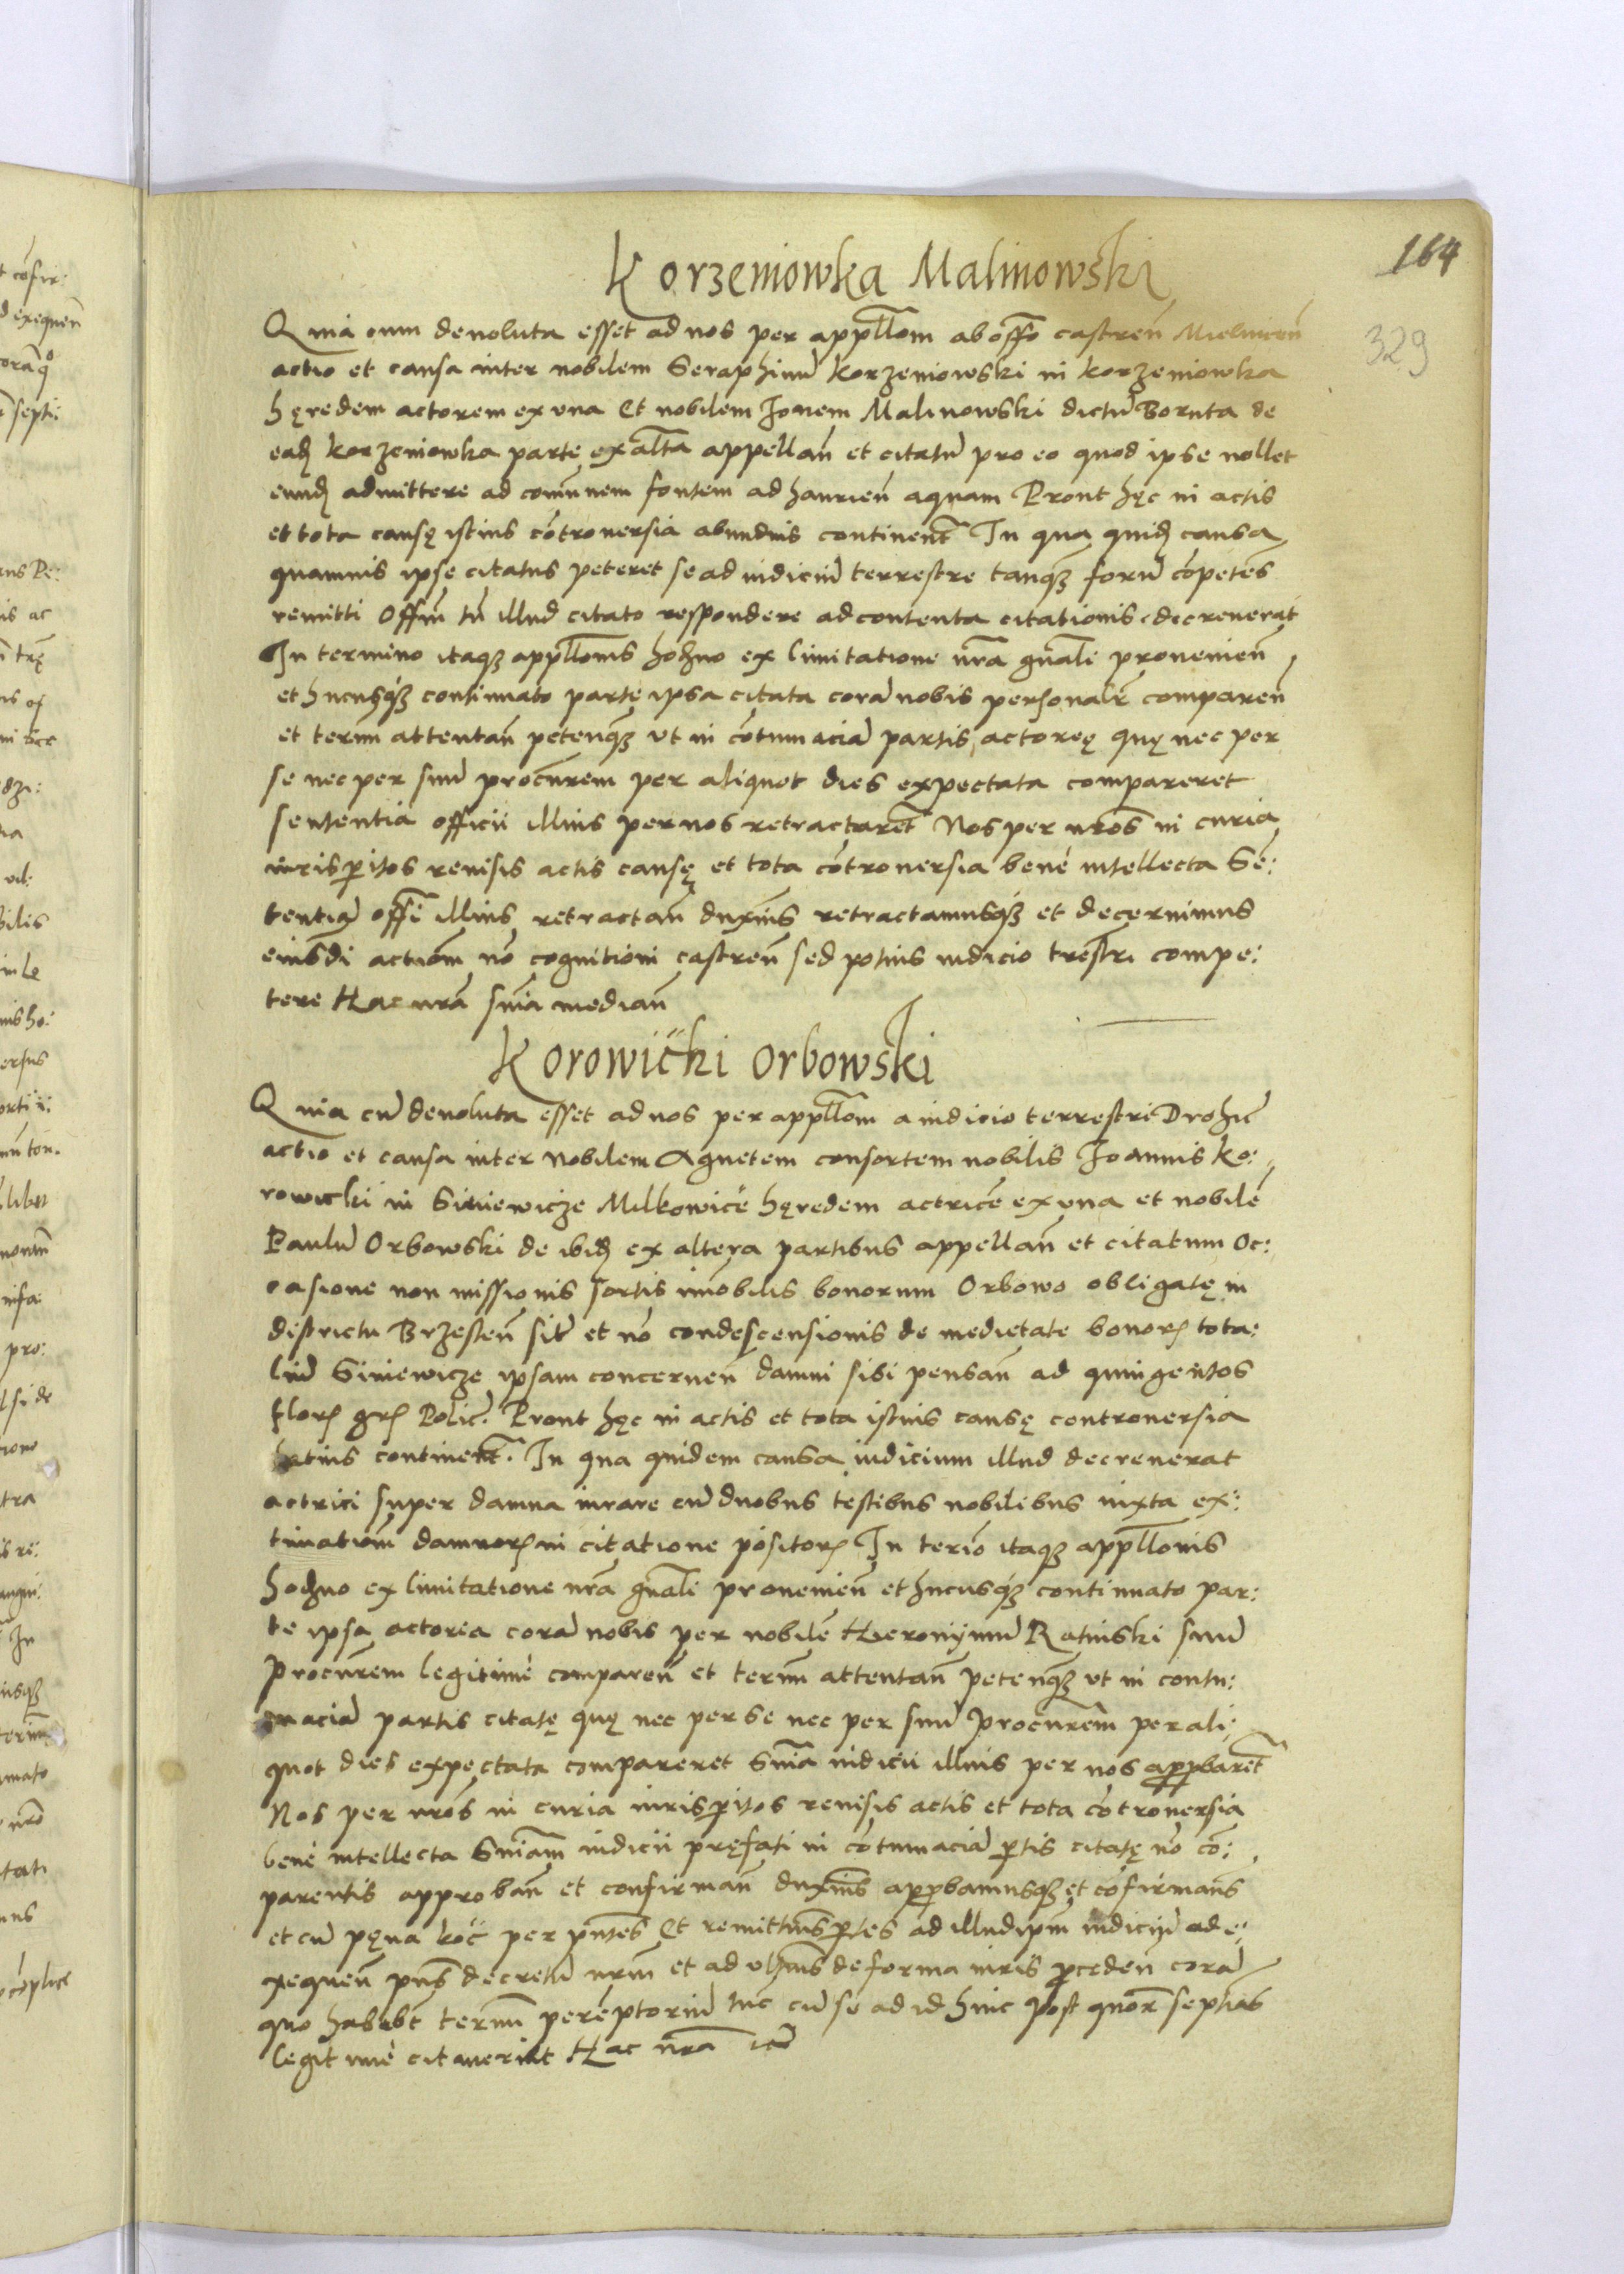 164
329
Korzeniowka Malinowski
Quia cum deuoluta esset ad nos per appllom ab offo castren̄ Mielnicen̄
actio et causa inter nobilem Seraphinū Korzeniowski in Korzeniowka
hęredem actorem ex vna Et nobilem Joanem Malinowski dictū Boruta de
ead Korzeniowka parte ex altā appellan̄ et citatū pro eo quod ipse nollet
eund admittere ad comūnem fontem ad haurien̄ aquam Prout hęc in actis
et tota causę istius cōtrouersia abundius continent̄ In qua quid causa
quamuis ipse citatus peteret se ad iudiciū terrestre tanq̄ʒ forū cōpetēs
remitti Offm̄ tn̄ illud citato respondere ad contenta citationis decreuerat
In termino itaqʒ appllonis hodno ex limitatione nrā gnāli prouenien̄
et hucusqʒ continuato parte ipsa citata corā nobis personalr̄ comparen̄
et term̄ attentan̄ petenqʒ vt in cōtumaciā partis actoreę quę nec per
se nec per suū procurem per aliquot dies expectata compareret
sententia officii illius per nos retractaret̄ Nos per nr̄os in curia
iurisperitos reuisis actis causę et tota cōtrouersia bene intellecta Sē:
tentiā offi illius retractan̄ duxim̄s retractamusqʒ et decernimus
eiusdi actiom̄ nō cognitioni castren̄ sed potius iudicio trestri compe:
tere Hac nrā sn̄ia median̄
Korowicki Orbowski
Quia cū deuoluta esset ad nos per appllom a iudicio terrestri Drohic̄
actio et causa inter Nobilem Agnetem consortem nobilis Joannis Ko:
rowicki in Siniewicze Milkowicē hęredem actricē ex vna et nobilē
Paulū Orbowski de ibid ex altera partibus appellan̄ et citatum Oc:
casione non missionis sortis imobilis bonorum Orbowo obligatę in
districtu Brzesten̄ sit̄ et nō condescensionis de medietate bonor tota:
liū Siniewicze ipsam concernen̄ damni sibi pensan̄ ad quingentos
flor gr Polic̄. Prout hęc in actis et tota istius causę controuersia
latius continent̄. In qua quidem causa iudicium illud decreuerat
actrici super damna iurare cū duobus testibus nobilibus iuxta ex:
timatiom̄ damnor in citatione positor In teriō itaqʒ appllonis
hodno ex limitatione nrā gnāli prouenien̄ et hucusqʒ continuato par:
te ipsa actorea corā nobis per nobilē Hieronijmū Ratinski suū
Procurem legitimè comparen̄ et term̄ attentan̄ petenqʒ vt in contu:
maciā partis citatę quę nec per se nec per suū procurem̄ per ali:
quot dies expectata compareret Sn̄ia iudicii illius per nos approbaret̄
Nos per nr̄os in curia iurisperitos reuisis actis et tota cōtrouersia
benè intellecta Sn̄iam iudicii pręfati in cōtumaciā ptis citatę nō cō:
parentis approban̄ et confirman̄ duxim̄s approbamusqʒ et cōfirmam̄s
et cū pęna koc̄ per pn̄tes Et remittim̄s ptes ad illud ipm̄ iudiciū ad e:
xequen̄ pn̄s decretū nrm̄ et ad vlterius de forma iuris proceden̄ corā
quo habebt̄ term̄ peremptoriū tūc cū se ad id hinc post quor septias
legitimè citauerint Hac nrā ic̄